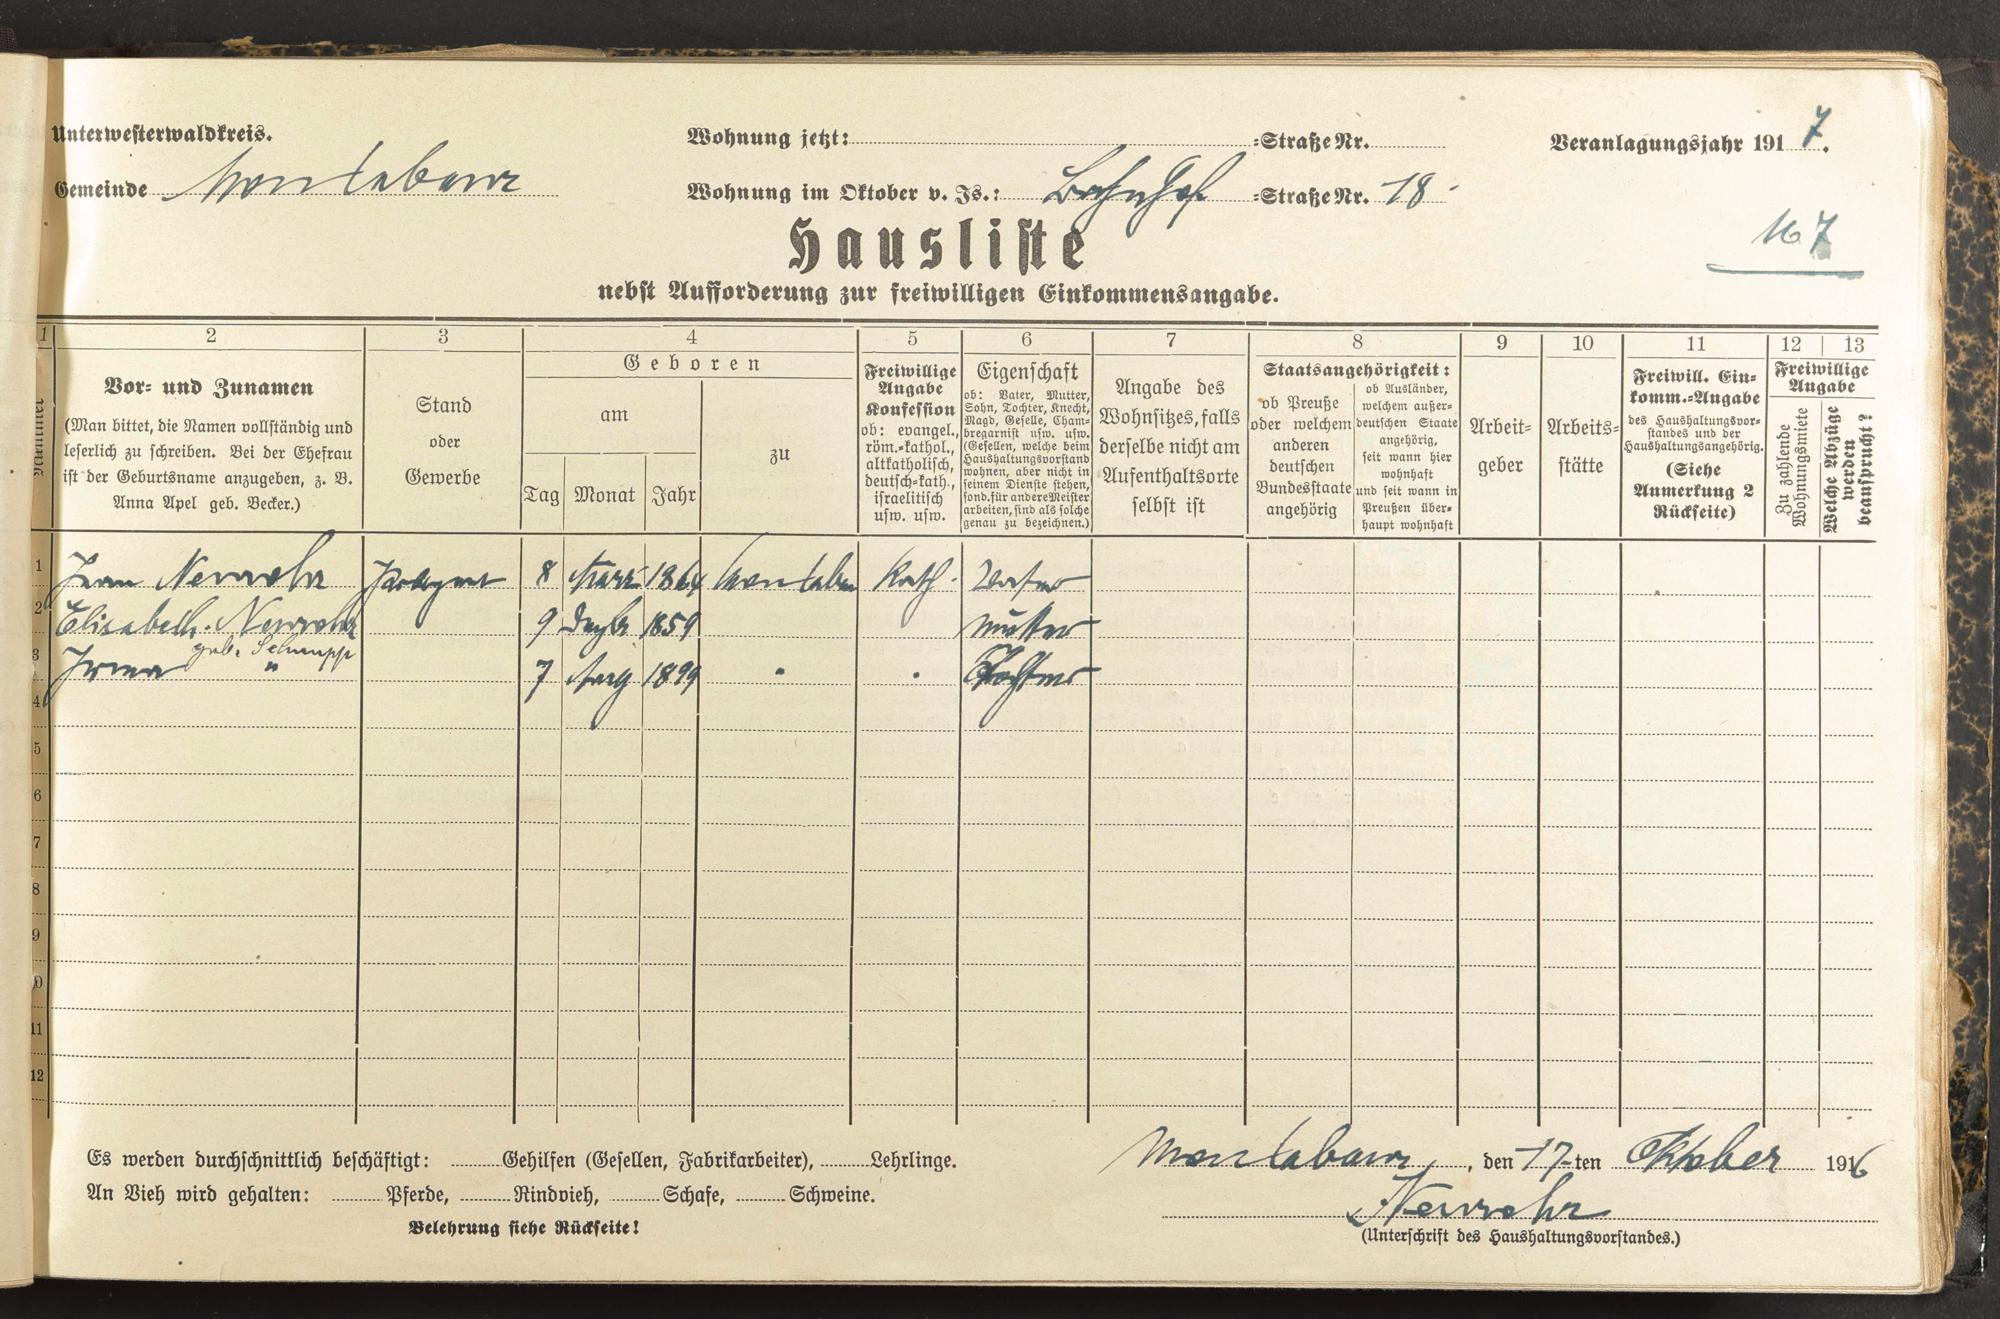 Unterwesterwaldkreis.
Wohnung jetzt: -Straße Nr.
Veranlagungsjahr 1917.
Gemeinde Montabaur
Wohnung im Oktober v. Js.: Bahnhof -Straße Nr. 18
167
Hausliste
nebst Aufforderung zur freiwilligen Einkommensangabe.
1 2 3 4 5 6 7 8 9 10 11 12 13
Nummer
Vor- und Zunamen
(Man bittet, die Namen vollständig und
leserlich zu schreiben. Bei der Ehefrau
ist der Geburtsname anzugeben, z. B.
Anna Apel geb. Becker.)
Stand
oder
Gewerbe
Geboren
am
Tag Monat Jahr
zu
Freiwillige
Angabe
Konfession
ob: evangel.,
röm.-kathol.,
altkatholisch,
deutsch-kath.,
israelitisch
usw. usw.
Eigenschaft
ob: Vater, Mutter,
Sohn, Tochter, Knecht,
Magd, Geselle, Cham-
bregarnist usw. usw.
(Gesellen, welche beim
Haushaltungsvorstand
wohnen, aber nicht in
seinem Dienste stehen,
sond. für andere Meister
arbeiten, sind als solche
genau zu bezeichnen.)
Angabe des
Wohnsitzes, falls
derselbe nicht am
Aufenthaltsorte
selbst ist
Staatsangehörigkeit:
ob Preuße
oder welchem
anderen
deutschen
Bundesstaate
angehörig
ob Ausländer,
welchem außer-
deutschen Staate
angehörig,
seit wann hier
wohnhaft
und seit wann in
Preußen über-
haupt wohnhaft
Arbeit-
geber
Arbeits-
stätte
Freiwill. Ein-
komm.-Angabe
des Haushaltungsvor-
standes und der
Haushaltungsangehörig.
(Siehe
Anmerkung 2
Rückseite)
Freiwillige
Angabe
Zu zahlende
Wohnungsmiete
Welche Abzüge
werden
beansprucht?
1 Jean Neurohr 8 März 1864 Montabaur Kath. Vater
2 Elisabeth Neurohr 9 Dezbr 1859 Mutter
geb. Schupp
3 Irma " 7 Aug 1899 " " Tochter
4
5
6
7
8
9
10
11
12
Es werden durchschnittlich beschäftigt: Gehilfen (Gesellen, Fabrikarbeiter), Lehrlinge.
Montabaur, den 17-ten Oktober 1916
An Vieh wird gehalten: Pferde, Rindvieh, Schafe, Schweine.
Neurohr
Belehrung siehe Rückseite!
(Unterschrift des Haushaltungsvorstandes.)